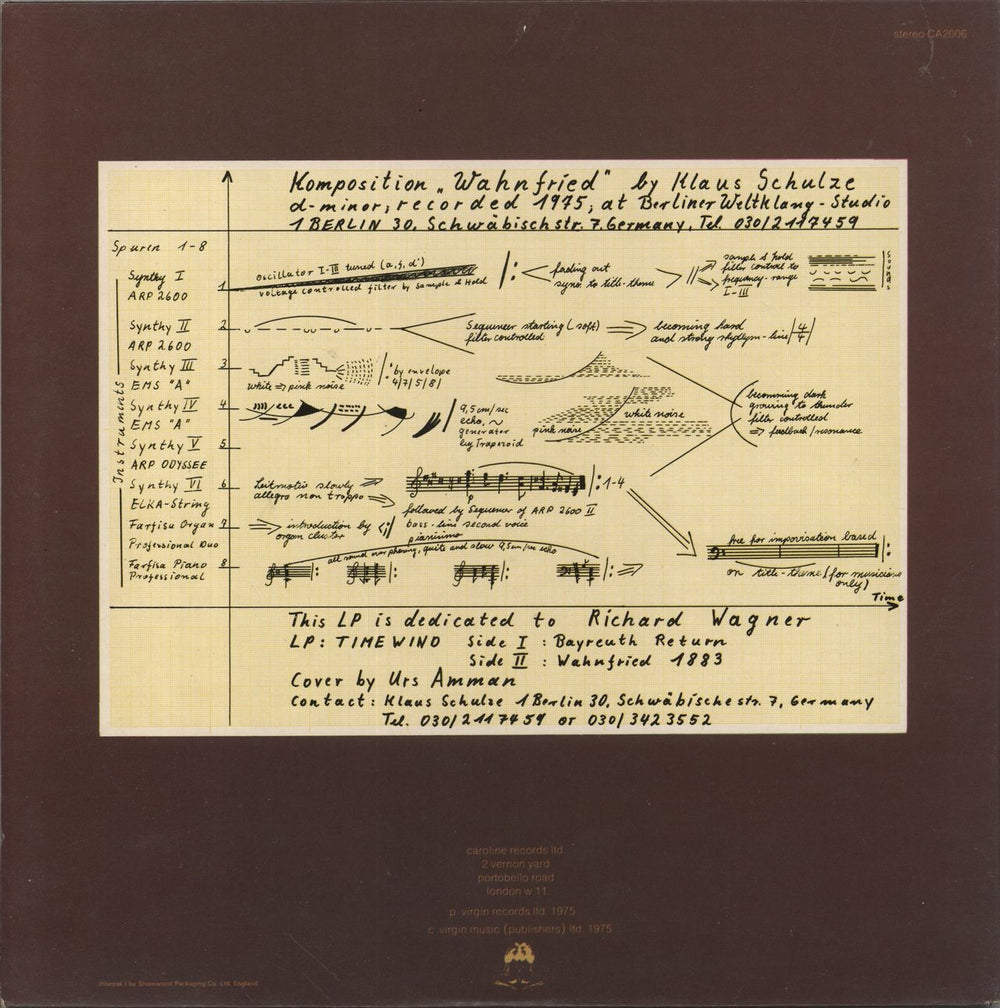 stereo CA2006
Komposition „Wahnfried" by Klaus Schulze
d-minor; recorded 1975; at Berliner Weltklang-Studio
1 BERLIN 30. Schwäbischstr. 7. Germany. Tel. 030/2117459
Spuren 1-8
Instruments
Synthy I
ARP 2600
1
oscillator I-III tuned (a, g, d')
voltage controlled filter by Sample & Hold
fading out
sync. to title-theme
sample & hold
filter control to
frequency-range
I-III
Sounds
Synthy II
ARP 2600
2
Sequencer starting (soft)
filter controlled
becoming hard
and strong rhythm-line 4/4
Synthy III
EMS "A"
3
white ⇒ pink noise
by envelope
4/7/5/8/
Synthy IV
EMS "A"
4
9,5 cm/sec
echo, ~
generator
by Trapezoid
white noise
pink noise
becomming dark
growing to thunder
filter controlled
⇒ feedback/resonance
Synthy V
ARP ODYSSEE
5
Synthy VI
ELKA-String
6
Leitmotiv slowly
allegro non troppo
1-4
followed by Sequencer of ARP 2600 II
bass-line second voice
Farfisa Organ
Professional Duo
7
introduction by
organ cluster
pianissimo
Farfisa Piano
Professional
8
all sound over phasing, quite and slow 9,5 cm/sec echo
for improvisation based
on title-theme (for musicians
only)
Time
This LP is dedicated to Richard Wagner
LP: TIMEWIND Side I : Bayreuth Return
Side II : Wahnfried 1883
Cover by Urs Amman
Contact: Klaus Schulze 1 Berlin 30, Schwäbische str. 7, Germany
Tel. 030/2117459 or 030/3423552
caroline records ltd.
2 vernon yard
portobello road
london w.11
p. virgin records ltd. 1975
c. virgin music (publishers) ltd. 1975
by Shorewood Packaging Co. Ltd. England